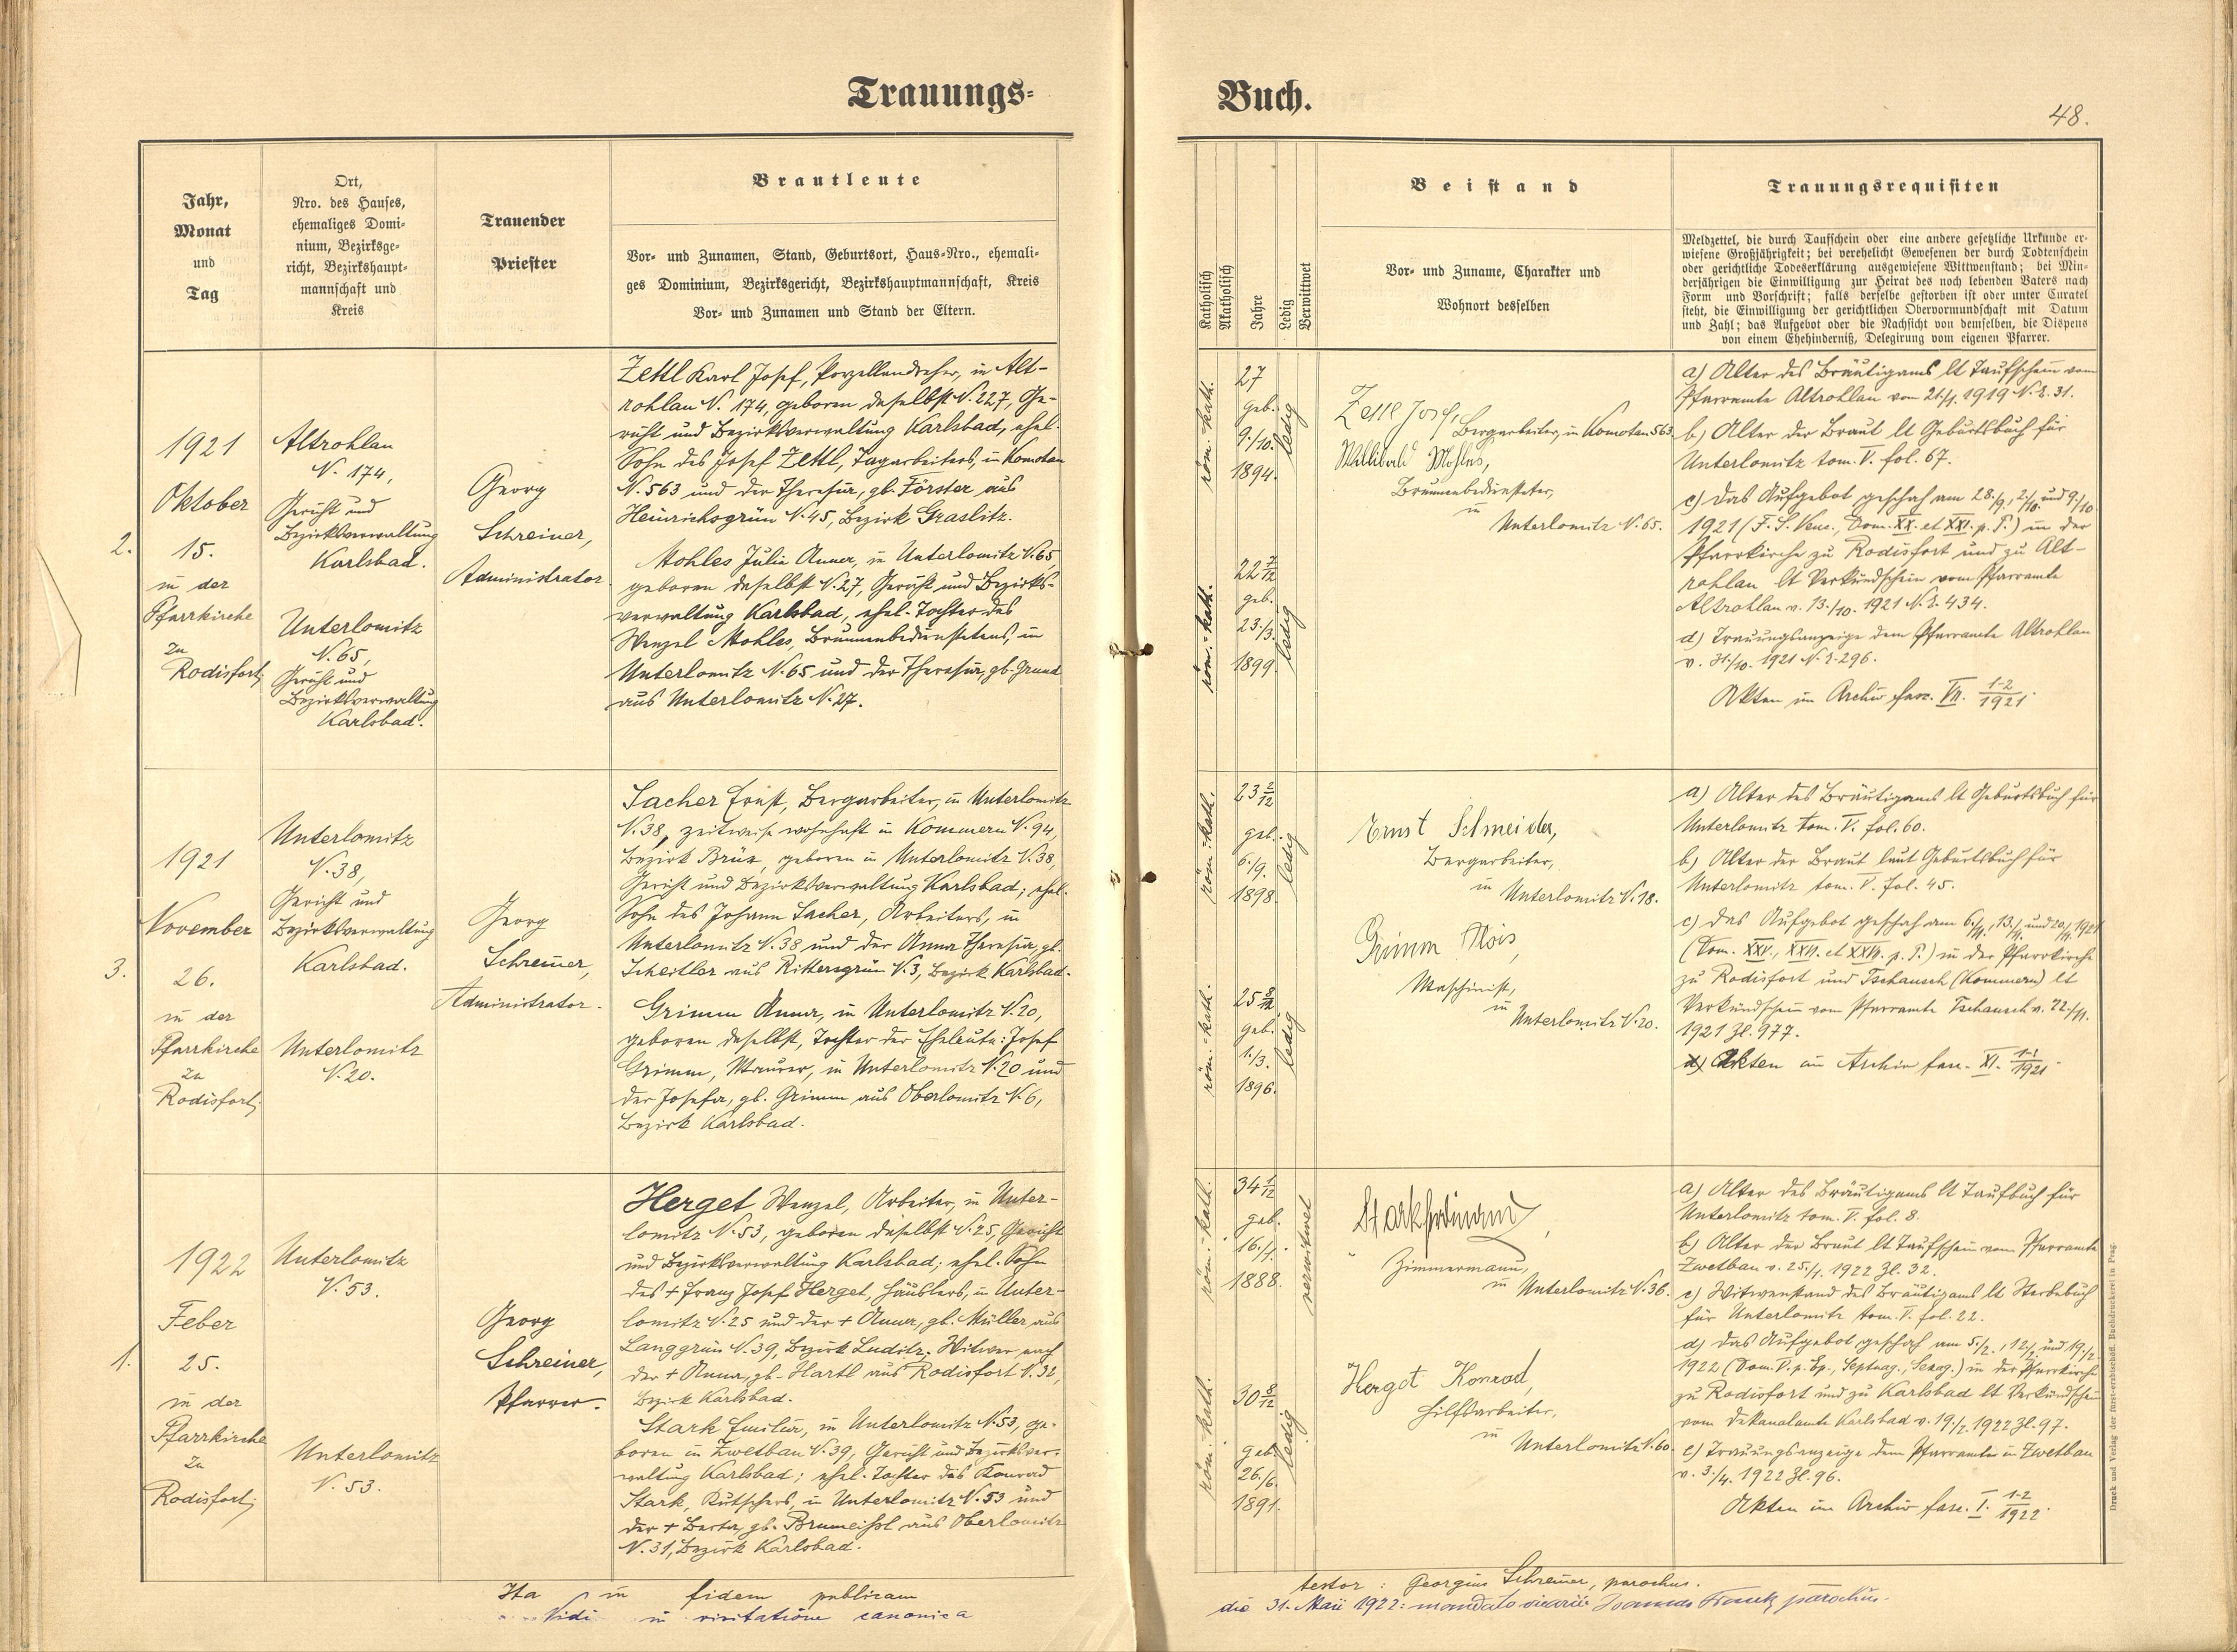 Trauungs-
Buch.
48.
Jahr,
Monat
und
Tag
Ort,
Nro. des Hauses,
ehemaliges Domi-
nium, Bezirksge-
richt, Bezirkshaupt-
mannschaft und
Kreis
Trauender
Priester
Brautleute
Vor- und Zunamen, Stand, Geburtsort, Haus-Nro., ehemali-
ges Dominium, Bezirksgericht, Bezirkshauptmannschaft, Kreis
Vor- und Zunamen und Stand der Eltern.
Katholisch
Akatholisch
Jahre
Ledig
Verwittwet
Beistand
Vor- und Zuname, Charakter und
Wohnort desselben
Trauungsrequisiten
Meldzettel, die durch Taufschein oder eine andere gesetzliche Urkunde er-
wiesene Großjährigkeit; bei verehelicht Gewesenen der durch Todtenschein
oder gerichtliche Todeserklärung ausgewiesene Wittwenstand; bei Min-
derjährigen die Einwilligung zur Heirat des noch lebenden Vaters nach
Form und Vorschrift; falls derselbe gestorben ist oder unter Curatel
steht, die Einwilligung der gerichtlichen Obervormundschaft mit Datum
und Zahl; das Aufgebot oder die Nachsicht von demselben, die Dispens
von einem Ehehinderniß, Delegirung vom eigenen Pfarrer.
2.
1921
Oktober
15.
in der
Pfarrkirche
zu
Rodisfort;
Altrohlau
N. 174,
Gericht und
Bezirksverwaltung
Karlsbad.
Unterlomitz
N. 65,
Gericht und
Bezirksverwaltung
Karlsbad.
Georg
Schreiner,
Administrator
Zettl Karl Josef, Porzellandreher, in Alt-
rohlau N. 174, geboren daselbst N. 227, Ge-
richt und Bezirksverwaltung Karlsbad, ehel.
Sohn des Josef Zettl, Tagarbeiters, in Komotau
N. 563 und der Theresia, gb. Förster aus
Heinrichsgrün N. 45, Bezirk Graslitz.
Mohles Julia Anna, in Unterlomitz N. 65,
geboren daselbst N. 27, Gericht und Bezirks-
verwaltung Karlsbad, ehel. Tochter des
Wenzel Mohles, Brunnenbediensteten, in
Unterlomitz N. 65 und der Theresia, gb. Grund
aus Unterlomitz N. 27.
röm.-kath.
27
geb.
9./10.
1894.
ledig
röm.-kath.
22 7/12
geb.
23./3.
1899.
ledig
Zettl Josef,
Bergarbeiter, in Komotau 563.
Willibald Mohles,
Brunnenbediensteter,
in
Unterlomitz N. 65.
a) Alter des Bräutigams lt Taufschein vom
Pfarramte Altrohlau vom 21./1. 1919 N. E. 31.
b) Alter der Braut lt Geburtsbuch für
Unterlomitz tom. V. fol. 67.
c) Das Aufgebot geschah am 28./9., 2./10. und 9./10.
1921 (F. S. Venc., Dom. XX. et XXI. p. P.) in der
Pfarrkirche zu Rodisfort und zu Alt-
rohlau lt Verkündschein vom Pfarramte
Altrohlau v. 13./10. 1921 N. E. 434.
d) Trauungsanzeige dem Pfarramte Altrohlau
v. 31./10. 1921 N. E. 296.
Akten im Archiv fasc. VII. 1-2/1921.
3.
1921
November
26.
in der
Pfarrkirche
zu
Rodisfort;
Unterlomitz
N. 38,
Gericht und
Bezirksverwaltung
Karlsbad.
Unterlomitz
N. 20.
Georg
Schreiner,
Administrator.
Sacher Ernst, Bergarbeiter, in Unterlomitz
N. 38, zeitweise wohnhaft in Kommern N. 94,
Bezirk Brüx, geboren in Unterlomitz N. 38,
Gericht und Bezirksverwaltung Karlsbad; ehel.
Sohn des Johann Sacher, Arbeiters, in
Unterlomitz N. 38 und der Anna Theresia, gb.
Scheitler aus Rittersgrün N. 3, Bezirk Karlsbad.
Grimm Anna, in Unterlomitz N. 20,
geboren daselbst, Tochter der Eheleute: Josef
Grimm, Maurer, in Unterlomitz N. 20 und
der Josefa, gb. Grimm aus Oberlomitz N. 6,
Bezirk Karlsbad.
röm.-kath.
23 2/12
geb.
6./9.
1898.
ledig
röm.-kath.
25 8/12
geb.
1./3.
1896.
ledig
Ernst Schneider,
Bergarbeiter,
in Unterlomitz N. 18.
Grimm Alois,
Maschinist,
in
Unterlomitz N. 20.
a) Alter des Bräutigams lt Geburtsbuch für
Unterlomitz tom. V. fol. 60.
b) Alter der Braut laut Geburtsbuch für
Unterlomitz tom. V. fol. 45.
c) Das Aufgebot geschah am 6./11., 13./11. und 20./11. 1921
(Dom. XXV., XXVI. et XXVII. p. P.) in der Pfarrkirche
zu Rodisfort und Tschausch (Kommern) lt
Verkündschein vom Pfarramte Tschausch v. 22./11.
1921 Zl. 977.
Akten im Archiv fasc. XI. 1-1/1921.
1.
1922
Feber
25.
in der
Pfarrkirche
zu
Rodisfort;
Unterlomitz
N. 53.
Unterlomitz
N. 53.
Georg
Schreiner,
Pfarrer.
Herget Wenzel, Arbeiter, in Unter-
lomitz N. 53, geboren daselbst N. 25, Gericht
und Bezirksverwaltung Karlsbad; ehel. Sohn
des + Franz Josef Herget, Häuslers, in Unter-
lomitz N. 25 und der + Anna, gb. Müller aus
Langgrün N. 39, Bezirk Luditz; Witwer nach
der + Anna, gb. Hartl aus Rodisfort N. 32,
Bezirk Karlsbad.
Stark Emilia, in Unterlomitz N. 53, ge-
boren in Zwetbau N. 39, Gericht und Bezirksver-
waltung Karlsbad; ehel. Tochter des Konrad
Stark, Kutschers, in Unterlomitz N. 53 und
der + Berta, gb. Brumeisl aus Oberlomitz
N. 31, Bezirk Karlsbad.
röm.-kath.
34 1/12
geb.
16./1.
1888.
verwitwet
röm.-kath.
30 8/12
geb.
26./6.
1891.
ledig
Stark Ferdinand,
Zimmermann,
in Unterlomitz N. 36.
Herget Konrad,
Hilfsarbeiter,
in
Unterlomitz N. 60.
a) Alter des Bräutigams lt Taufbuch für
Unterlomitz tom. V. fol. 8.
b) Alter der Braut lt Taufschein vom Pfarramte
Zwetbau v. 25./1. 1922 Zl. 32.
c) Witwenstand des Bräutigams lt Sterbebuch
für Unterlomitz tom. V. fol. 22.
d) Das Aufgebot geschah am 5./2., 12./2. und 19./2.
1922 (Dom. V. p. Ep., Septuag., Sexag.) in der Pfarrkirche
zu Rodisfort und zu Karlsbad lt Verkündschein
vom Dekanalamte Karlsbad v. 19./2. 1922 Zl. 97.
e) Trauungsanzeige dem Pfarramte in Zwetbau
v. 3./4. 1922 Zl. 96.
Akten im Archiv fasc. I. 1-2/1922.
Druck und Verlag der fürst-erzbischöfl. Buchdruckerei in Prag.
Ita in fidem publicam
testor: Georgius Schreiner, parochus.
Vidi in visitatione canonica
die 31. Maii 1922: mandato vicarii Joannes Franck parochus.